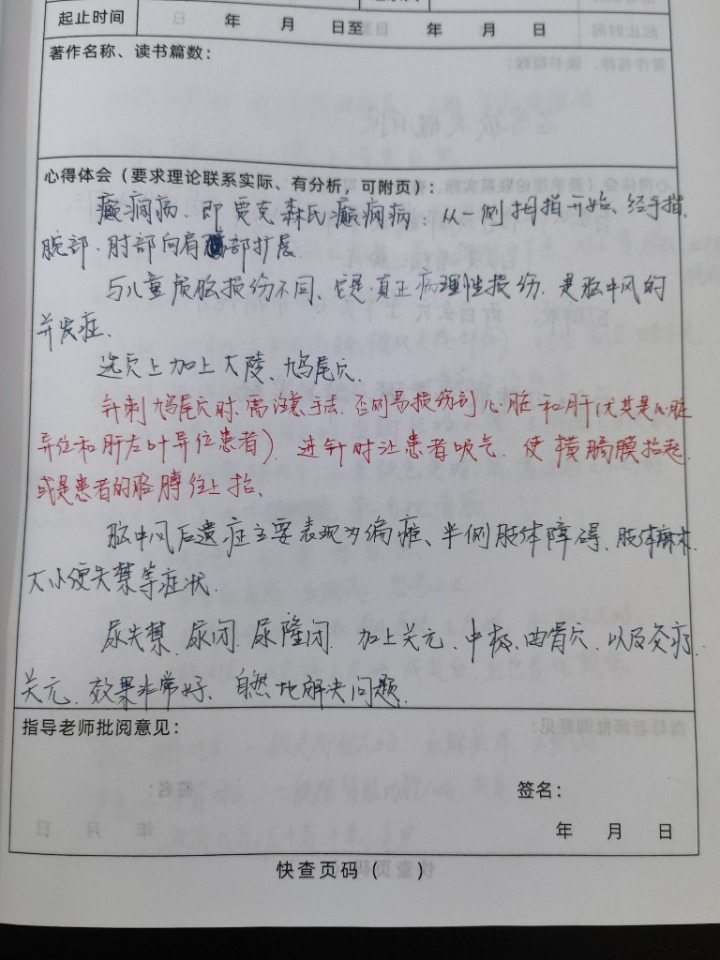 起止时间 年 月 日至 年 月 日
著作名称、读书篇数：
心得体会（要求理论联系实际、有分析，可附页）：
癫痫病.即贾克森氏癫痫病：从一侧拇指开始、经手指、
腕部.肘部向肩部扩展.
与儿童质脑损伤不同、它是真正病理性损伤.是脑中风的
并发症.
选穴上加上大陵、鸠尾穴.
针刺鸠尾穴时.需注意手法.否则易损伤到心脏和肝(尤其是心脏
异位和肝左叶异位患者).进针时让患者吸气.使横膈膜抬起.
或是患者的胳膊往上抬.
脑中风后遗症主要表现为偏瘫、半侧肢体障碍、肢体麻木.
大小便失禁等症状.
尿失禁.尿闭.尿隆闭.加上关元.中极.曲骨穴.以及灸疗
关元.效果非常好.自然地解决问题.
指导老师批阅意见：
签名：
年 月 日
快查页码（ ）